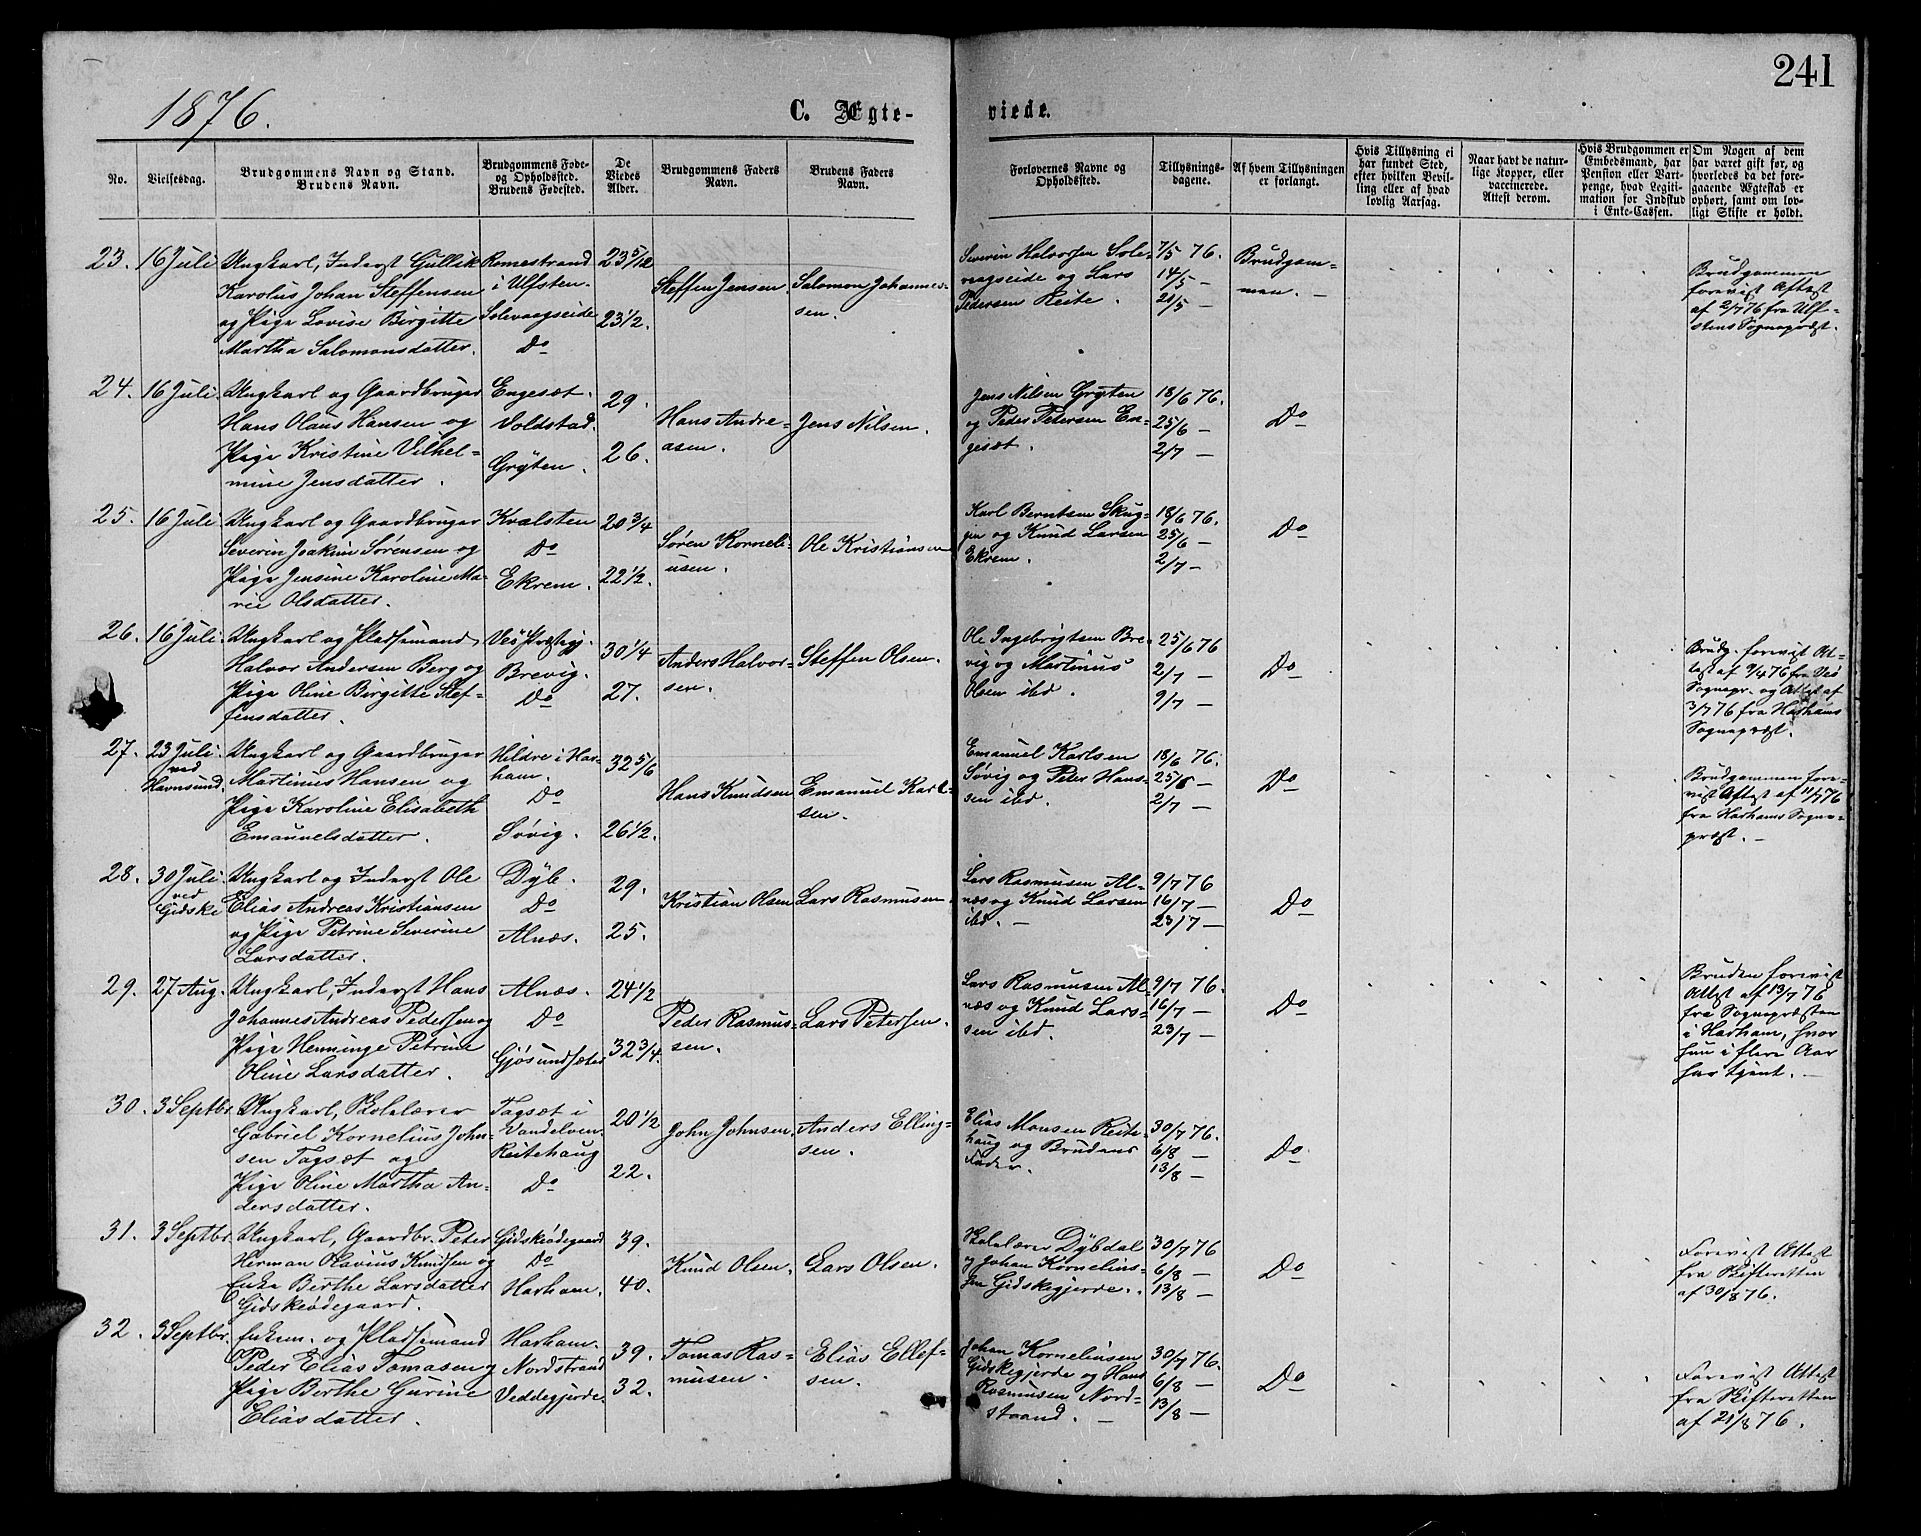 241
1876.
C. Ægte-
viede.
No.
Vielsesdag.
Brudgommens Navn og Stand.
Brudens Navn.
Brudgommens Føde-
og Opholdssted.
Brudens Fødested.
De
Viedes
Alder.
Brudgommens Faders
Navn.
Brudens Faders
Navn.
Forlovernes Navne og
Opholdssted.
Tillysnings-
dagene.
Af hvem Tillysningen
er forlangt.
Hvis Tillysning ei
har fundet Sted,
efter hvilken Bevil-
ling eller af hvad
lovlig Aarsag.
Naar havt de natur-
lige Kopper, eller
vaccinerede.
Attest derom.
Hvis Brudgommen er
Embedsmand, har
Pension eller Vart-
penge, hvad Legiti-
mation for Indskud
i Enke-Cassen.
Om Nogen af dem
har været gift før, og
hvorledes da det fore-
gaaende Ægteskab er
ophørt, samt om lov-
ligt Skifte er holdt.
23.
16 Juli
Ungkarl, Inderst Gullik
Karolus Johan Steffensen
og Pige Lovise Birgitte
Martha Salomonsdatter.
Romestrand
i Ulfsten.
Solevaagseide
Do
23 5/12
23 1/2.
Steffen Jensen.
Salomon Johannes-
sen.
Severin Halvorsen Sole-
vaagseide og Lars
Pedersen Reite.
7/5 76.
14/5 —
21/5 —
Brudgom-
men. —
Brudgommen
forevist Attest
af 2/7 76 fra Ulf-
stens Sognepræst.
24.
16 Juli.
Ungkarl og Gaardbruger
Hans Olaus Hansen og
Pige Kristine Vilhel-
mine Jensdatter.
Engesæt.
Voldstad.
Gryten.
29.
26.
Hans Andre-
asen.
Jens Nilsen.
Jens Nilsen Gryten
og Peder Petersen En-
gesæt.
18/6 76.
25/6 —
2/7 —
Do
25.
16 Juli
Ungkarl og Gaardbruger
Severin Joakim Sørensen og
Pige Jensine Karoline Ma-
rie Olsdatter.
Kvalsten
Do
Ekrem.
20 3/4
22 1/2.
Søren Korneli-
usen.
Ole Kristiansen
Karl Berntsen Skug-
jen og Knud Larsen
Ekrem.
18/6 76.
25/6 —
2/7 —
Do
26.
16 Juli.
Ungkarl og Pladsemand
Halvor Andersen Berg og
Pige Oline Birgitte Stef-
fensdatter.
Veø Præstegj.
Brevig.
Do
30 1/4
27.
Anders Halvor-
sen.
Steffen Olsen.
Ole Ingebrigtsen Bre-
vig og Martinus
Olsen ibd.
25/6 76
2/7 —
9/7 —
Do
Brudg. forevist At-
test af 9/4 76 fra Veø
Sognepr. og Attest af
3/7 76 fra Harhams
Sognepræst.
27.
23 Juli
ved
Havnsund.
Ungkarl og Gaardbruger
Martinus Hansen og
Pige Karoline Elisabeth
Emanuelsdatter.
Hildre i Har-
ham.
Do
Søvig.
32 5/6
26 1/2.
Hans Knudsen
Emanuel Karl-
sen.
Emanuel Karlsen
Søvig og Peter Hans-
sen ibd.
18/6 76.
25/6 —
2/7 —
Do
Brudgommen fore-
vist Attest af 11/7 76
fra Harhams Sogne-
præst. —
28.
30 Juli
ved
Gidske
Ungkarl og Inderst Ole
Elias Andreas Kristiansen
og Pige Petrine Severine
Larsdatter.
Dyb.
Do
Alnæs.
29.
25.
Kristian Olsen
Lars Rasmusen.
Lars Rasmusen Al-
næs og Knud Larsen
ibd. —
9/7 76
16/7 —
23/7 —
Do
29.
27 Aug.
Ungkarl, Inderst Hans
Johannes Andreas Pedersen og
Pige Henninge Petrine
Oline Larsdatter.
Alnæs.
Do
Gjøsundsæter
24 1/2
32 3/4.
Peder Rasmus-
sen.
Lars Petersen.
Lars Rasmusen Al-
næs og Knud Lars-
sen ibd.
9/7 76.
16/7 —
23/7 —
Do
Bruden forevist
Attest af 13/7 76
fra Sognepræsten
i Harham, hvor
hun i flere Aar
har tjent. —
30.
3 Septbr.
Ungkarl, Skolelærer
Gabriel Kornelius John-
sen Tagsæt og
Pige Oline Martha An-
dersdatter.
Tagsæt i
Vandelven.
Reitehaug
Do
20 1/2
22.
John Johnsen.
Anders Elling-
sen.
Elias Monsen Reite-
haug og Brudens
Fader.
30/7 76.
6/8 —
13/8 —
Do
31.
3 Septbr.
Ungkarl, Gaardbr. Peter
Herman Olavius Knudsen og
Enke Berthe Larsdatter
Gidskeødegaard.
Gidskeødegaard
Do
Harham.
39.
40.
Knud Olsen.
Lars Olsen.
Skolelærer Dybdal
og Johan Kornelius-
sen Gidskegjerde.
30/7 76
6/8 —
13/8 —
Do
Forevist Attest
fra Skifteretten
af 30/8 76.
32.
3 Septbr.
Enkem. og Pladsemand
Peder Elias Tomasen og
Pige Berthe Gurine
Eliasdatter.
Harham.
Nordstrand
Veddegjerde.
39.
32.
Tomas Ras-
musen.
Elias Ellef-
sen.
Johan Korneliusen
Gidskegjerde og Hans
Rasmusen Nord-
strand. —
30/7 76.
6/8 —
13/8 —
Do
Forevist Attest
fra Skifteretten
af 21/8 76.